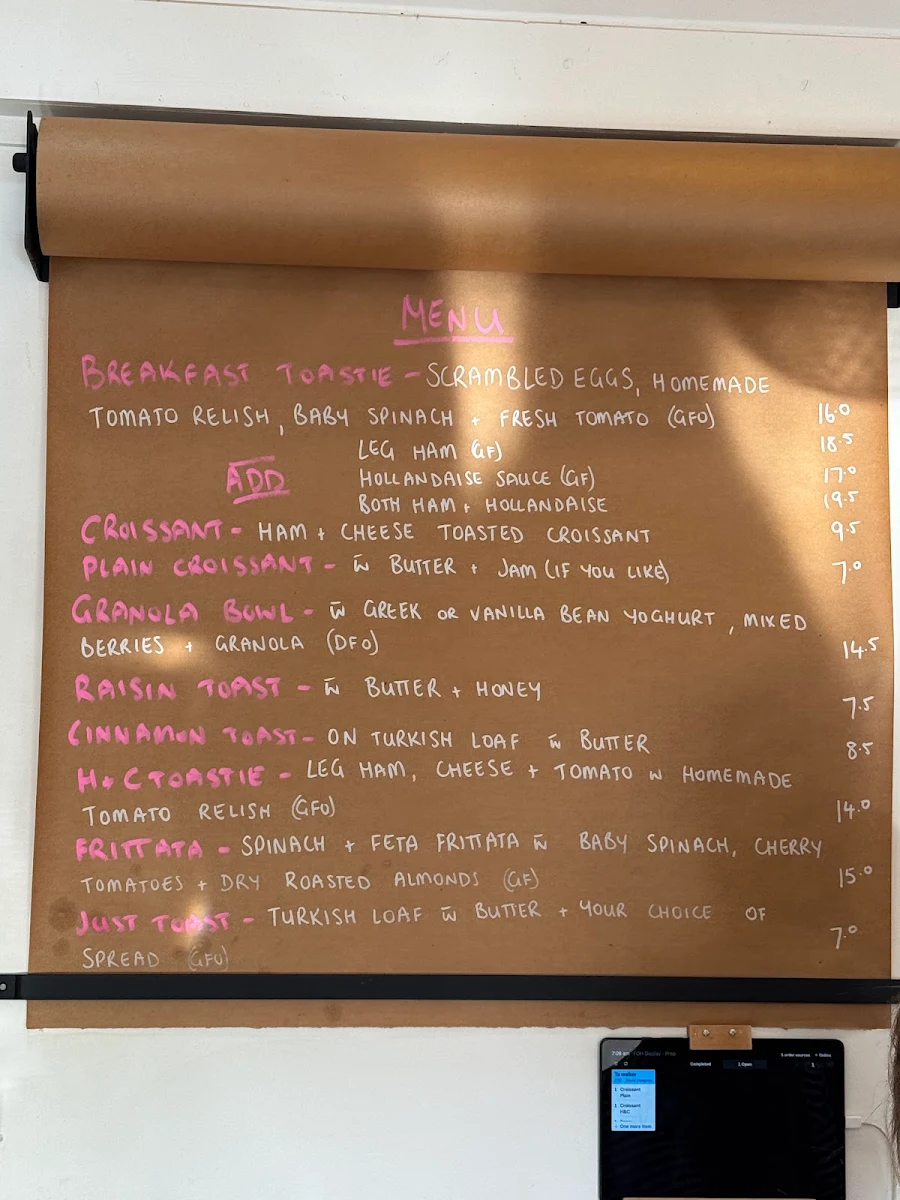 MENU
BREAKFAST TOASTIE - SCRAMBLED EGGS, HOMEMADE
TOMATO RELISH, BABY SPINACH + FRESH TOMATO (GFO) 16.0
LEG HAM (GF) 18.5
ADD HOLLANDAISE SAUCE (GF) 17.0
BOTH HAM + HOLLANDAISE 19.5
CROISSANT - HAM + CHEESE TOASTED CROISSANT 9.5
PLAIN CROISSANT - w̄ BUTTER + JAM (IF YOU LIKE) 7.0
GRANOLA BOWL - w̄ GREEK OR VANILLA BEAN YOGHURT, MIXED
BERRIES + GRANOLA (DFO) 14.5
RAISIN TOAST - w̄ BUTTER + HONEY 7.5
CINNAMON TOAST - ON TURKISH LOAF w̄ BUTTER 8.5
H+C TOASTIE - LEG HAM, CHEESE + TOMATO w HOMEMADE
TOMATO RELISH (GFO) 14.0
FRITTATA - SPINACH + FETA FRITTATA w̄ BABY SPINACH, CHERRY
TOMATOES + DRY ROASTED ALMONDS (GF) 15.0
JUST TOAST - TURKISH LOAF w̄ BUTTER + YOUR CHOICE OF
SPREAD (GFO) 7.0
Completed
1 Open
1 Croissant
Plain
1 Croissant
H&C
1 One more item